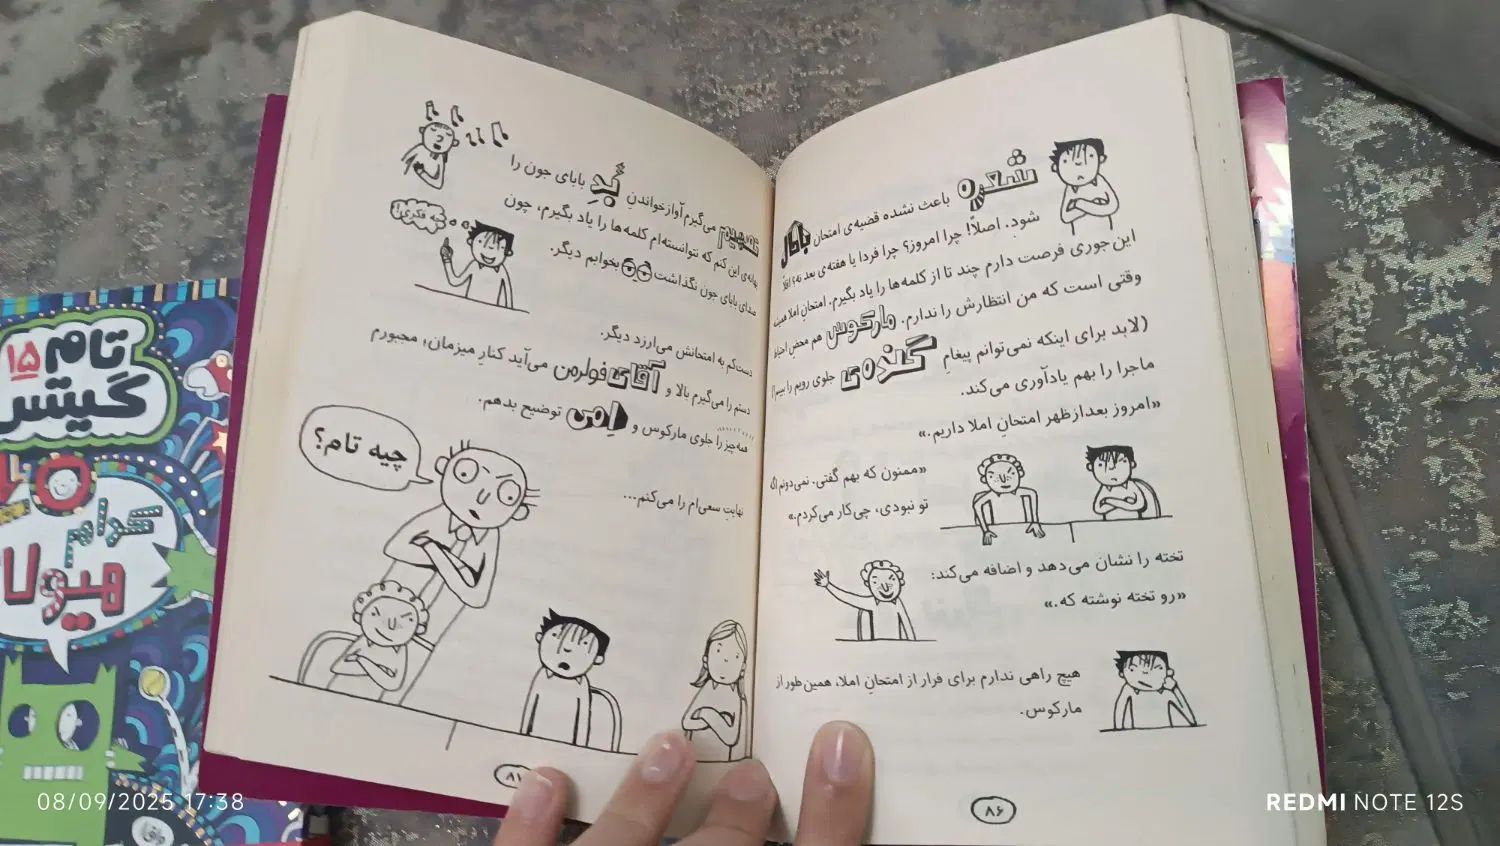 شعره باعث نشده قضیه‌ی امتحان باطل
شود. اصلاً! چرا امروز؟ چرا فردا یا هفته‌ی بعد نه؟
این‌جوری فرصت دارم چند تا از کلمه‌ها را یاد بگیرم. امتحان املا
وقتی است که من انتظارش را ندارم. مارکوس هم محض
(لابد برای اینکه نمی‌توانم پیغامِ گُنده‌ی جلوی رویم را ببینم)
ماجرا را بهم یادآوری می‌کند.
«امروز بعدازظهر امتحانِ املا داریم.»
«ممنون که بهم گفتی. نمی‌دونم اگه
تو نبودی، چی‌کار می‌کردم.»
تخته را نشان می‌دهد و اضافه می‌کند:
«رو تخته نوشته که.»
هیچ راهی ندارم برای فرار از امتحانِ املا، همین‌طور از
مارکوس.
۸۶
تصمیم می‌گیرم آوازخواندنِ بَدِ بابای جون را
بهانه‌ی این کنم که نتوانسته‌ام کلمه‌ها را یاد بگیرم، چون
صدای بابای جون نگذاشت بخوابم دیگر.
چه فکری!
دست‌کم به امتحانش می‌ارزد دیگر.
دستم را می‌گیرم بالا و آقای فولرمن می‌آید کنارِ میزمان؛ مجبورم
همه‌چیز را جلوی مارکوس و اِمی توضیح بدهم.
چیه تام؟
نهایتِ سعی‌ام را می‌کنم...
تام
۱۵
گیتس
کرام
هیولا
08/09/2025 17:38
REDMI NOTE 12S